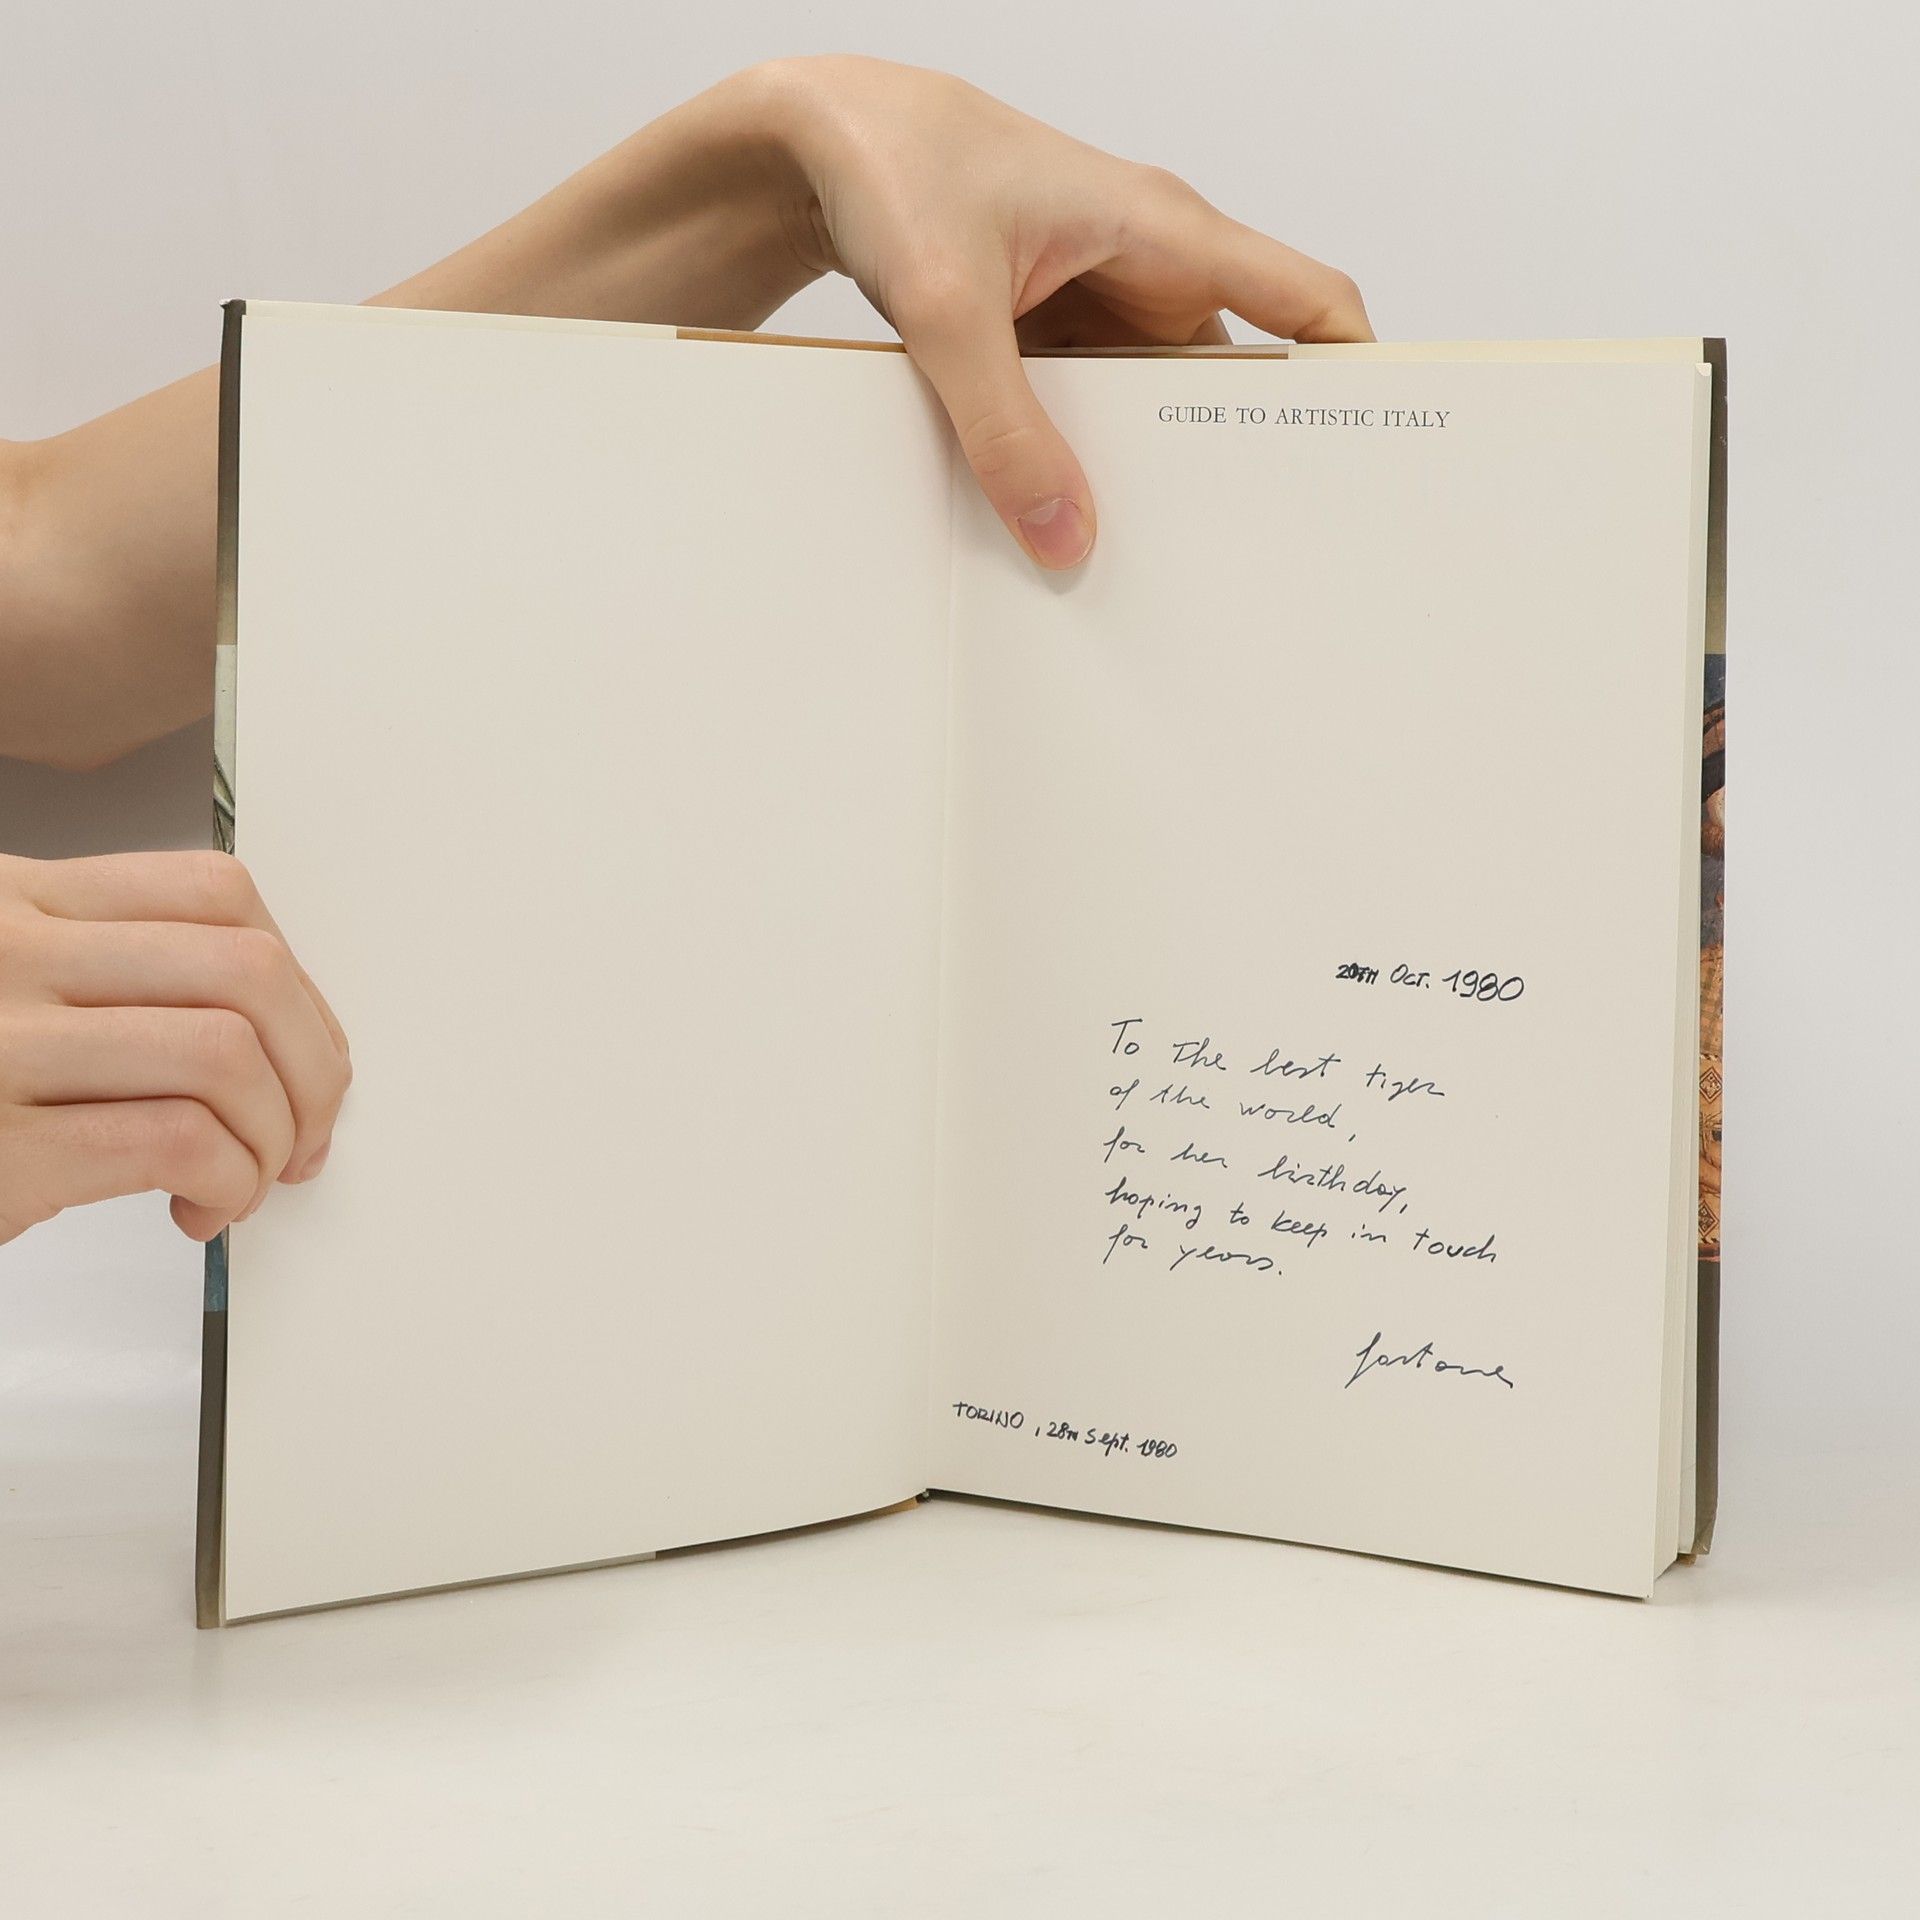 GUIDE TO ARTISTIC ITALY
20TH Oct. 1980
To The best tiger
of the world,
for her birthday,
hoping to keep in touch
for years.
TORINO, 28TH Sept. 1980